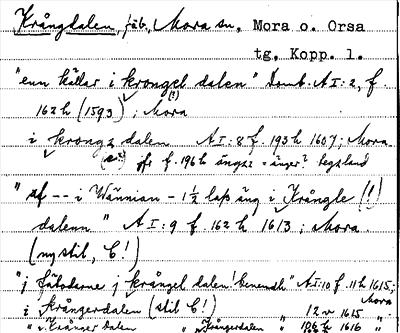 Krångdalen, fäb., Mora sn, Mora o. Orsa
tg. Kopp. l.
"enn kättar i krongel dalen" Domb. AI:2, f.
162 h (1593) ; Mora
(?)
i krongz dalen AI:8 f. 193 h 1607; Mora
jfr f. 196 h ängz = änger?
"af -- i Wännian - 1½ lap äng i Krångle (!)
dalenn" AI:9 f. 162 h 1613; Mora.
(ny stil, E!)
"j fäbodarne j krångel dalen! benemdh" AI:10 f. 11 h 1615;
Mora
i krångerdalen (stil E!) " 12 v 1615
" i Krånger dalen " Krångerdalen " 1616 "